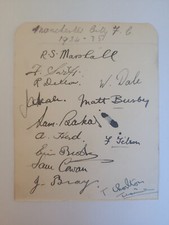 Manchester City F.C
1934-35
R.S. Marshall
F. Swift
R Dale W. Dale
Matt Busby
Sam Barkas
A. Herd F Tilson
Eric Brook
Sam Cowan
J. Bray